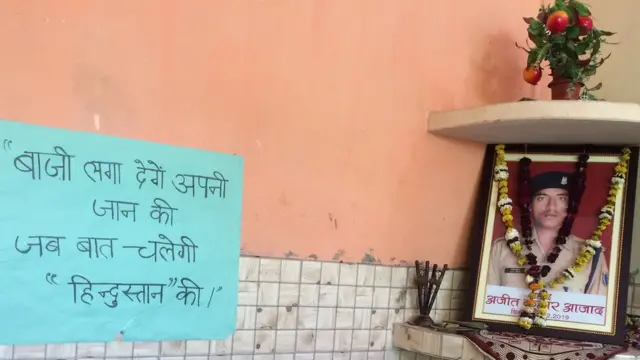 "बाजी लगा देगें अपनी
जान की
जब बात चलेगी
"हिन्दुस्तान" की।"
अजीत कुमार आजाद
2.2019